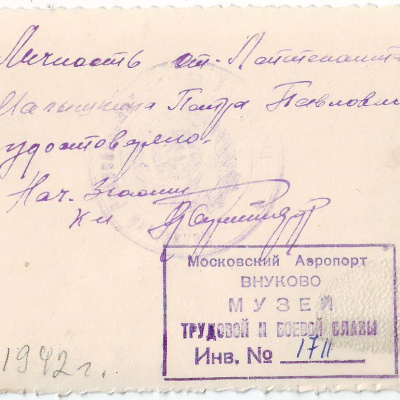 Личность ст. Лейтенанта
Малышкина Петра Павлови
удостоверяю.
Нач.
Московский Аэропорт
ВНУКОВО
МУЗЕЙ
ТРУДОВОЙ И БОЕВОЙ СЛАВЫ
Инв. № 1711
1942 г.